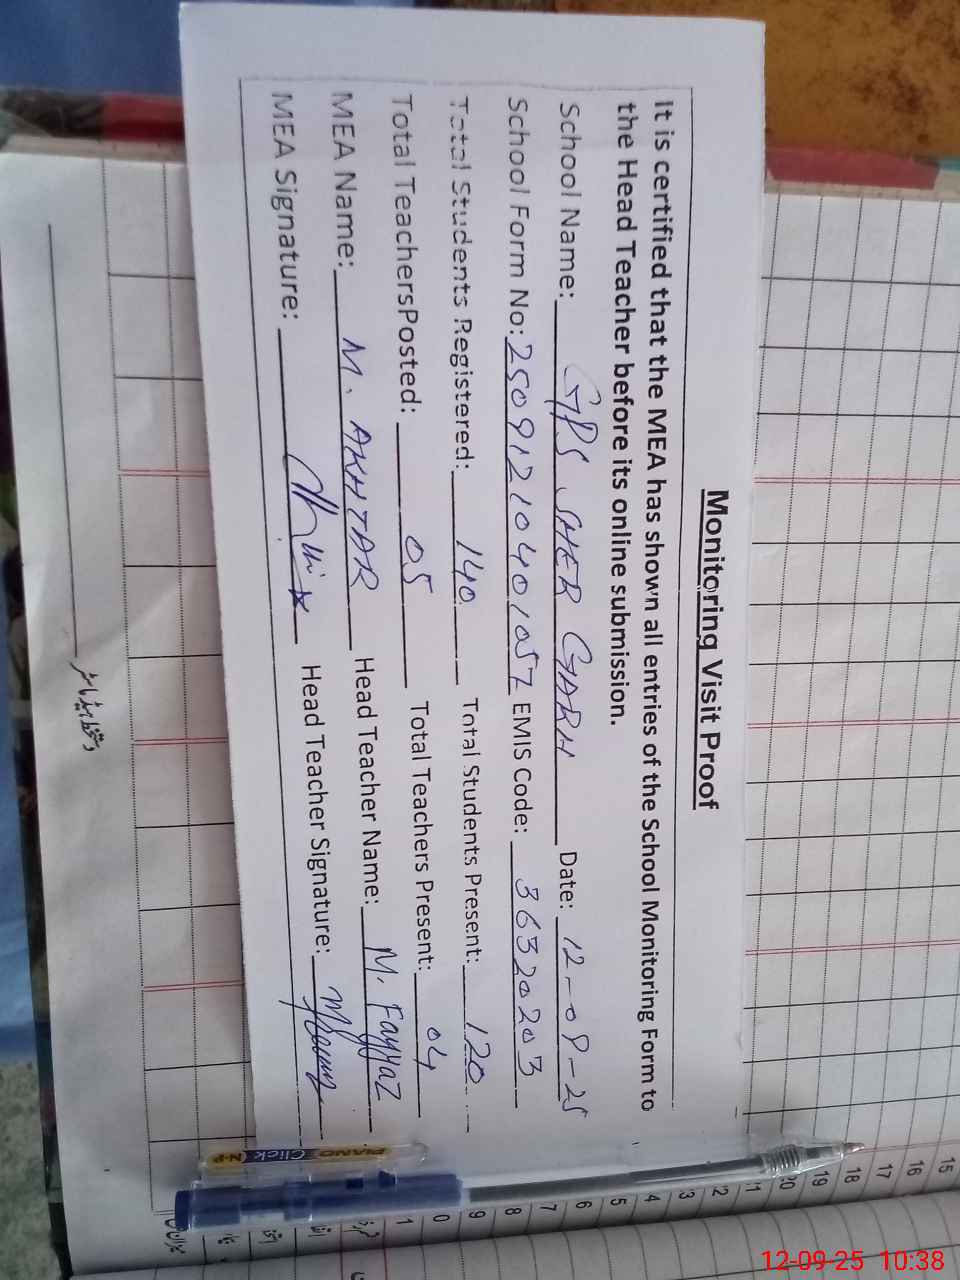 Monitoring Visit Proof
It is certified that the MEA has shown all entries of the School Monitoring Form to
the Head Teacher before its online submission.
School Name: GPS SHER GARH Date: 12-09-25
School Form No: 25091210401057 EMIS Code: 36320203
Total Students Registered: 140 Total Students Present: 120
Total TeachersPosted: 05 Total Teachers Present: 04
MEA Name: M. AKHTAR Head Teacher Name: M. Fayyaz
MEA Signature: Head Teacher Signature:
PIANO Click
15
16
17
18
19
20
12-09-25 10:38